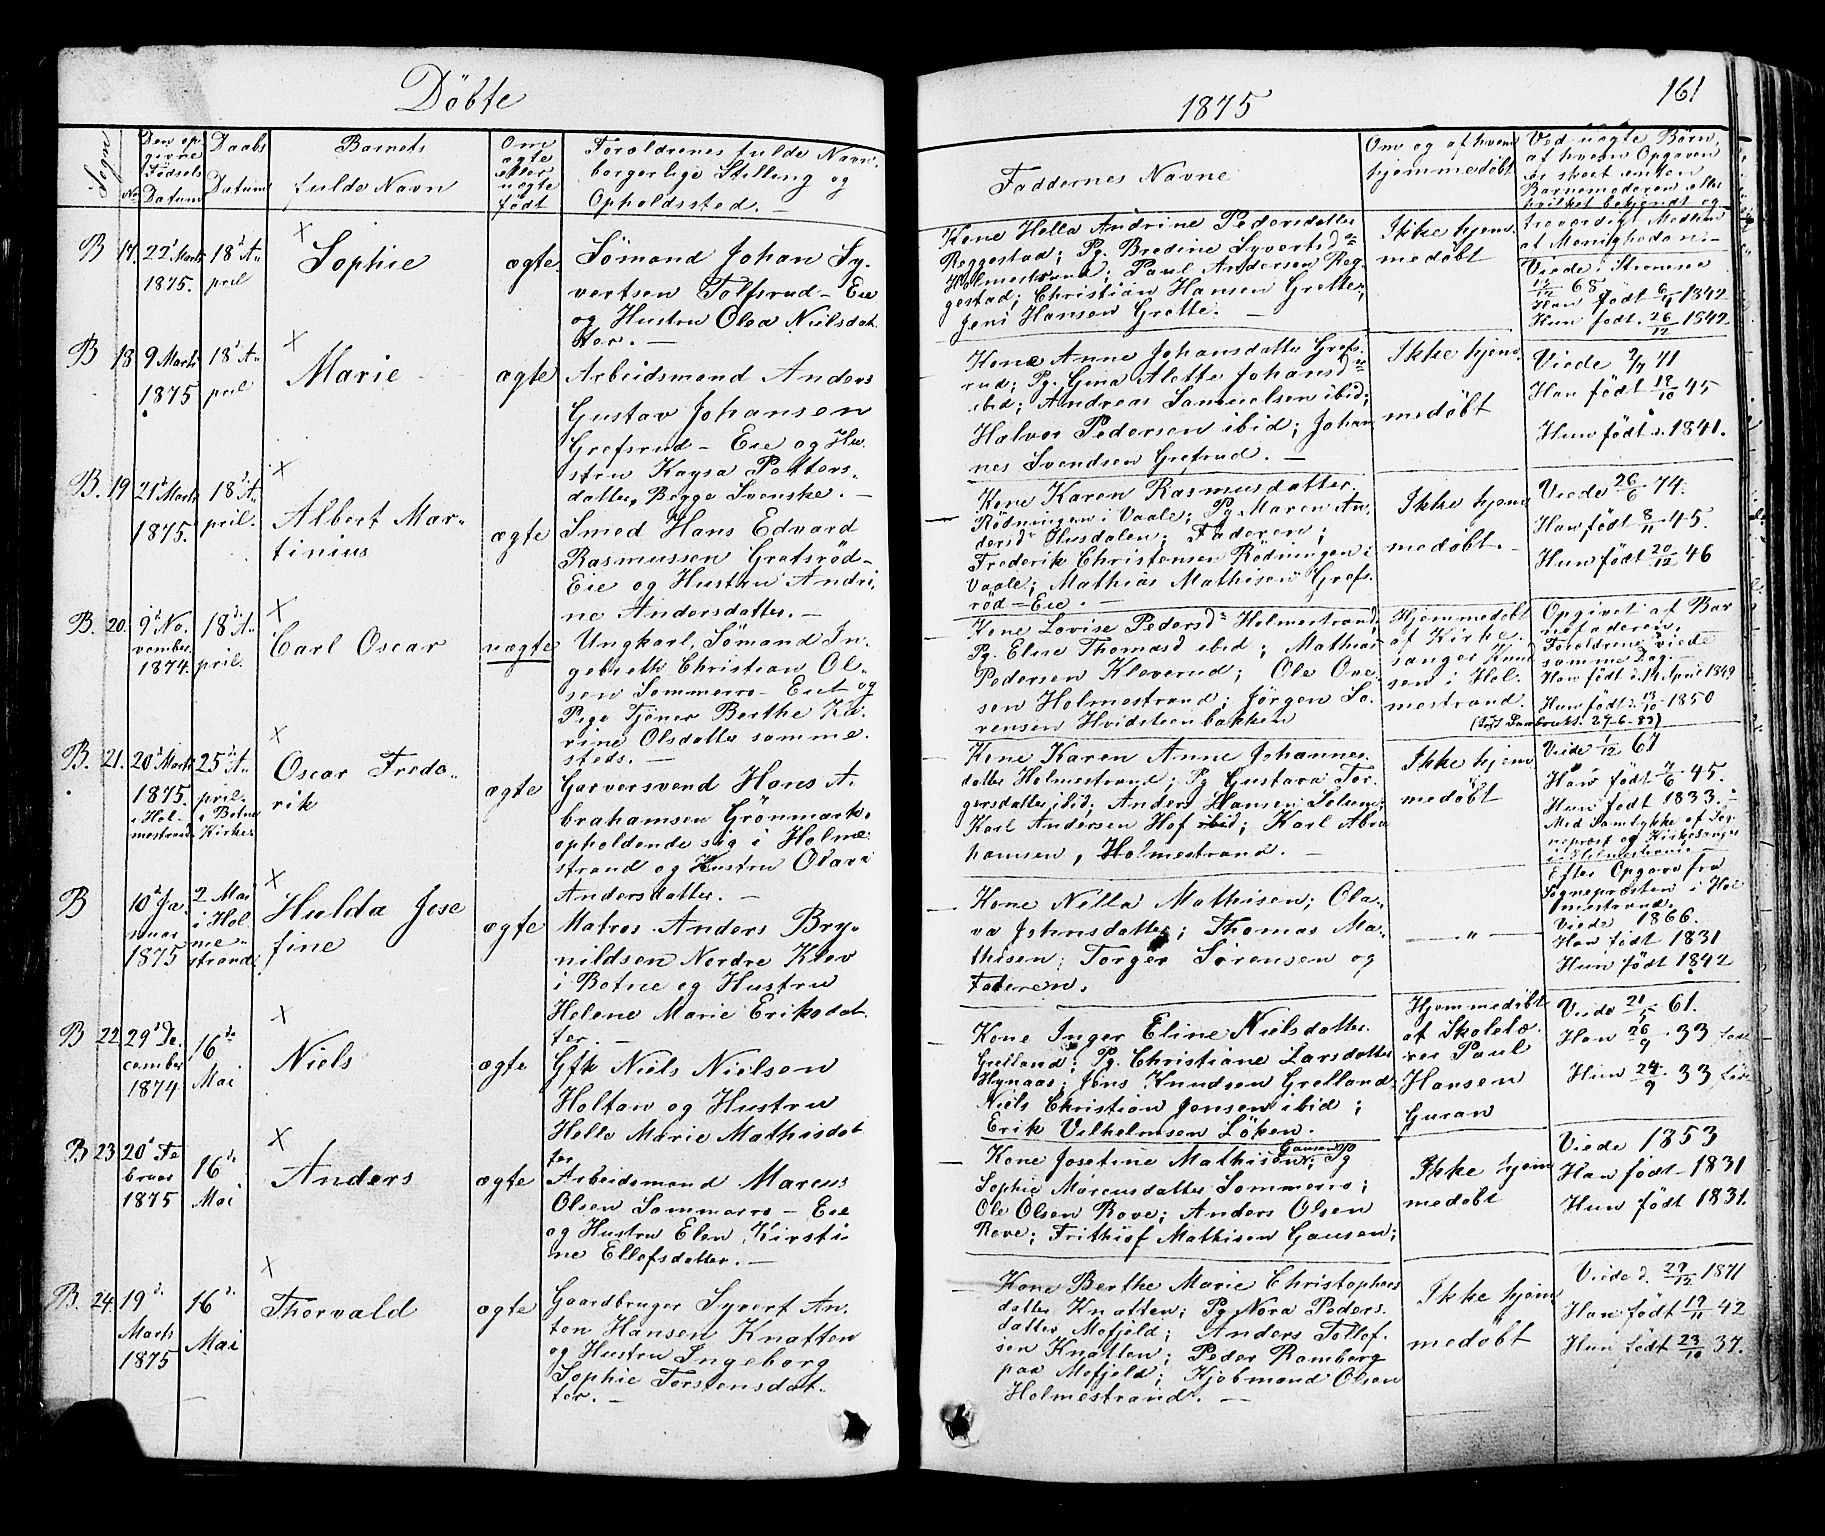 Döbte
1875
161
Sogn
No
Den op
givne
Födsels
Datum
Daabs
Datum
Barnets
fulde Navn
Om
ægte
eller
uægte
født
Forældrenes fulde Navn,
borgerlige Stilling og
Opholdssted. —
Faddernes Navne
Om og af hvem
hjemmedøbt
Ved uægte Börn,
af hvem Opgaven
er skeet enten
Barnemoderen eller
hvilket bekjendt og
troværdigt Medlem
af Menigheden. —
B 17. 22d Marts
1875.
18d A-
pril
×
Sophie
ægte
Sömand Johan Sy-
vertsen Tolfsrud - Eie
og Hustru Olea Nielsdat-
ter. —
Kone Helle Andrine Pedersdatter
Reggestad; Pg. Bredine Syvertsd
Holmestrand; Paul Andersen Reg-
gestad; Christian Hansen Grette;
Jens Hansen Grette. —
Ikke hjem-
medøbt
Viede i Strömm
68
Han født 1842
Hun født 26/12 1842
B 18. 9 Marts
1875
18d A-
pril
×
Marie
ægte
Arbeidsmand Anders
Gustav Johansen
Grefsrud - Eie og Hu-
stru Kaysa Petters-
datter, Begge Svenske. —
Kone Anne Johansdatter Grefs-
rud; Pg. Gina Alette Johansd
ibid; Andreas Samuelsen ibid;
Halvor Pedersen ibid; Johan
nes Svendsen Grefsrud. —
Ikke hjem-
medøbt
Viede 2/7 71
Han født 18/10 45
Hun født 1841.
B. 19 21d Marts
1875.
18d A-
pril.
×
Albert Mar-
tinius
ægte
Smed Hans Edvard
Rasmussen Grefsröd -
Eie og Hustru Andri-
ne Andersdatter. —
Kone Karen Rasmusdatter
Rödningen i Vaale; Pg. Maren An-
dersd Husdalen; Faderen;
Frederik Christensen Rödningen i
Vaale; Mathias Mathisen Grefs-
röd - Eie. —
Ikke hjem
medøbt. -
Viede 26/6 74.
Han født 8/11 45.
Hun født 20/12 46
B. 20. 9d No-
vember
1874.
18d A-
pril.
×
Carl Oscar
uægte
Ungkarl, Sömand In-
gebreth Christian Ol-
sen Sommerro - Eiet og
Pige Tjener Berthe Ka-
rine Olsdatter samme-
steds. —
Kone Lovise Pedersd Holmestrand;
Pg. Elise Thomasd ibid; Mathias
Pedersen Kleverud; Ole Ove-
sen Holmestrand; Jörgen So-
rensen Hvidsteenbakken
Hjemmedøbt
af Kirke-
sanger Knud
sen i Hol-
mestrand.
Opgivet af Bar
nefaderen.
Forældrene viede
samme Dag.
Han født d. 14 April 1849
Hun født d. 13/10 1850
B. 21. 20d Marts
1875.
i Hol-
mestrand
25d A-
pril.
i Botne
Kirke
×
Oscar Frede-
rik
ægte
Garversvend Hans A-
brahamsen Grönmark,
opholdende sig i Holme-
strand og Hustru Olava
Andersdatter. —
Kone Karen Anne Johannes-
datter Holmestrand; Pg Gustava Tor-
gersdatter ibid; Anders Hansen Solum;
Karl Andersen Hof ibid; Karl Abra
hamsen, Holmestrand. —
Ikke hjem
medøbt
Viede 1/12 67
Han født 7/6 45.
Hun født 1833.
Med Samtykke af Sog-
nepræst og Kirkesanger
i Holmestrand. —
B 10d Ja-
nuar
1875
2. Mai
i Hol
me-
strand
×
Hulda Jose
fine
ægte
Matros Anders Bry-
nildsen Nordre Klev
i Botne og Hustru
Helene Marie Eriksdat-
ter. —
Kone Nilla Mathisen; Ola-
va Johnsdatter; Thomas Ma-
thisen; Torger Sörensen og
Faderen.
— „ —
Efter Opgave fra
Sognepræsten i Hol
mestrand.
Viede 1866.
Han født 1831
Hun født 1842
B 22 29d De-
cember
1874
16de
Mai
×
Niels
ægte
Gfk Niels Nielsen
Holtan og Hustru
Helle Marie Mathisdat
ter
Kone Inger Eline Nielsdatter
Grelland; Pg. Christiane Larsdatter
Hynaas; Jens Knudsen Grelland
Niels Christian Jensen ibid;
Erik Vilhelmsen Löken.
Hjemmedøbt
af Skolelæ-
rer Paul
Hansen
Guran
Viede 21/5 61.
Han 26/9 33
Hun 24/9 33
B 23 20d Fe
bruar
1875
16de
Mai
×
Anders
ægte
Arbeidsmand Marcus
Olsen Sommerro - Eie
og Hustru Elen Kirsti-
ne Ellefsdatter. —
Kone Josefine Mathisen Gausen; Pg
Sophie Marcusdatter Sommerro;
Ole Olsen Rove; Anders Olsen
Rove; Frithiof Mathisen Gausen;
Ikke hjem
medøbt
Viede 1853
Han født 1831
Hun født 1831.
B. 24. 19de
Marts
1875
16de
Mai
×
Thorvald
ægte
Gaardbruger Syvert An-
ton Hansen Knatten
og Hustru Ingeborg
Sophie Torstensdat-
ter. —
Kone Berthe Marie Christophers
datter Knatten; Pg. Nora Peders-
datter Mofjeld; Anders Tollef-
sen Knatten; Peder Ramberg
paa Mofjeld; Kjøbmand Olsen
Holmestrand. —
Ikke hjem
medøbt
Viede d. 29/12 1871
Han født 19/11 42
Hun født 23/10 37.